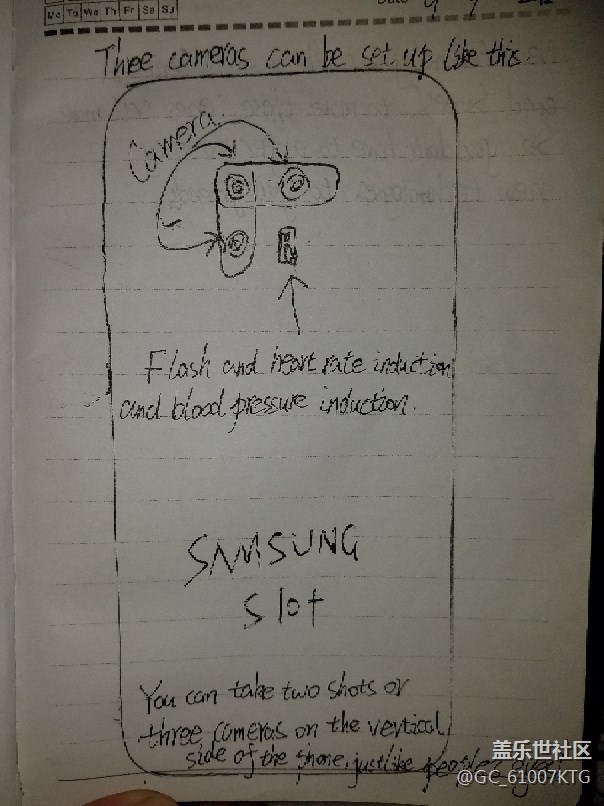 Mo Tu We Th Fr Sa Su
Three cameras can be set up like this
Camera
Flash and heart rate induction
and blood pressure induction.
SAMSUNG
Slot
You can take two shots or
three cameras on the vertical
side of the phone, just like people's eyes
盖乐世社区
@GC_61007KTG